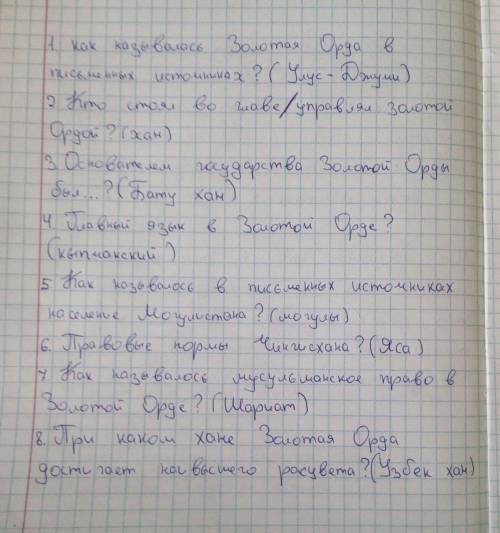 1. как называлось Золотая Орда в
письменных источниках? (Улус-Джучи)
2. Кто стоял во главе/управлял золотой
Ордой? (хан)
3. Основателем государства Золотой Орды
был...? (Бату хан)
4. Главный язык в Золотой Орде?
(кыпчакский)
5. Как называлось в письменных источниках
население Могулистана? (могулы)
6. Правовые нормы Чингисхана? (Яса)
7. Как называлось мусульманское право в
Золотой Орде? (Шариат)
8. При каком хане Золотая Орда
достигает наивысшего расцвета? (Узбек хан)